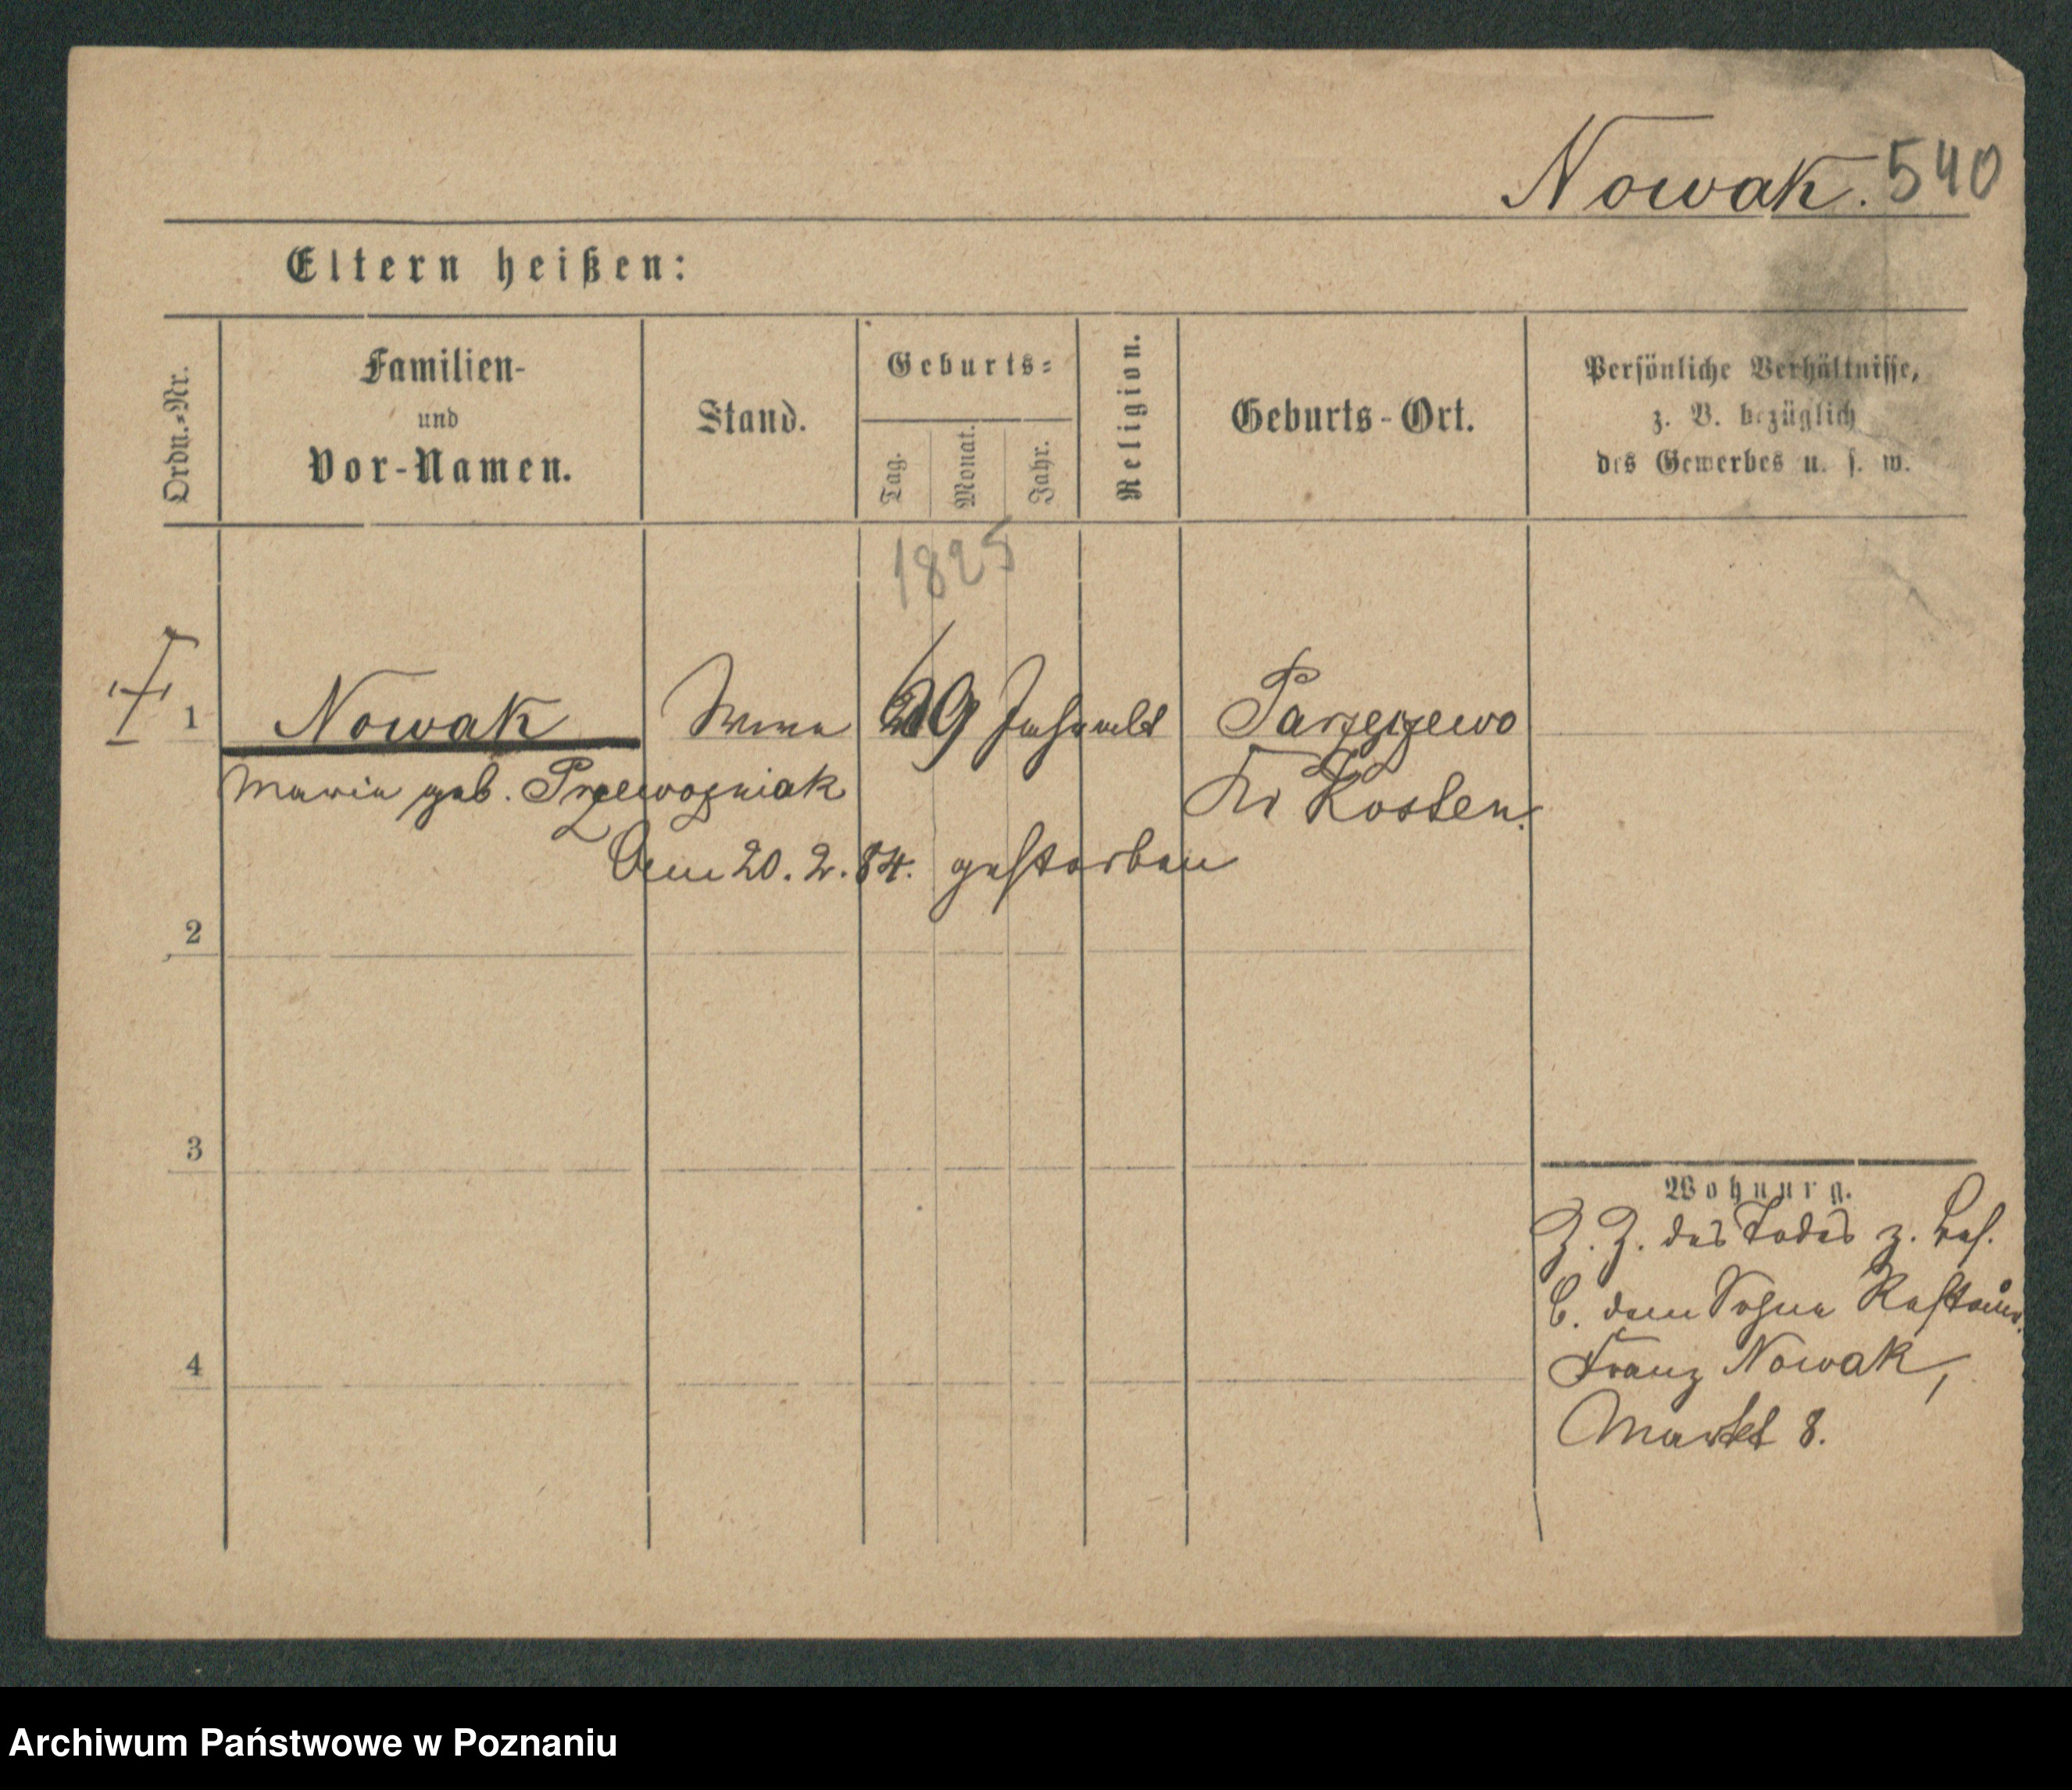 Nowak. 540
Eltern heißen:
Ordn.-Nr.
Familien-
und
Vor-Namen.
Stand.
Geburts-
Tag.
Monat.
Jahr.
Religion.
Geburts-Ort.
Persönliche Verhältnisse,
z. B. bezüglich
des Gewerbes u. s. w.
1825
1 Nowak 59 Jahr alt
Maria geb. Przewozniak
Kr Kosten.
Am 20. 2. 84. gestorben
2
3
4
Wohnung.
Z. Z. des Todes z. Bes.
b. dem Sohne
Franz Nowak,
Markt 8.
Archiwum Państwowe w Poznaniu